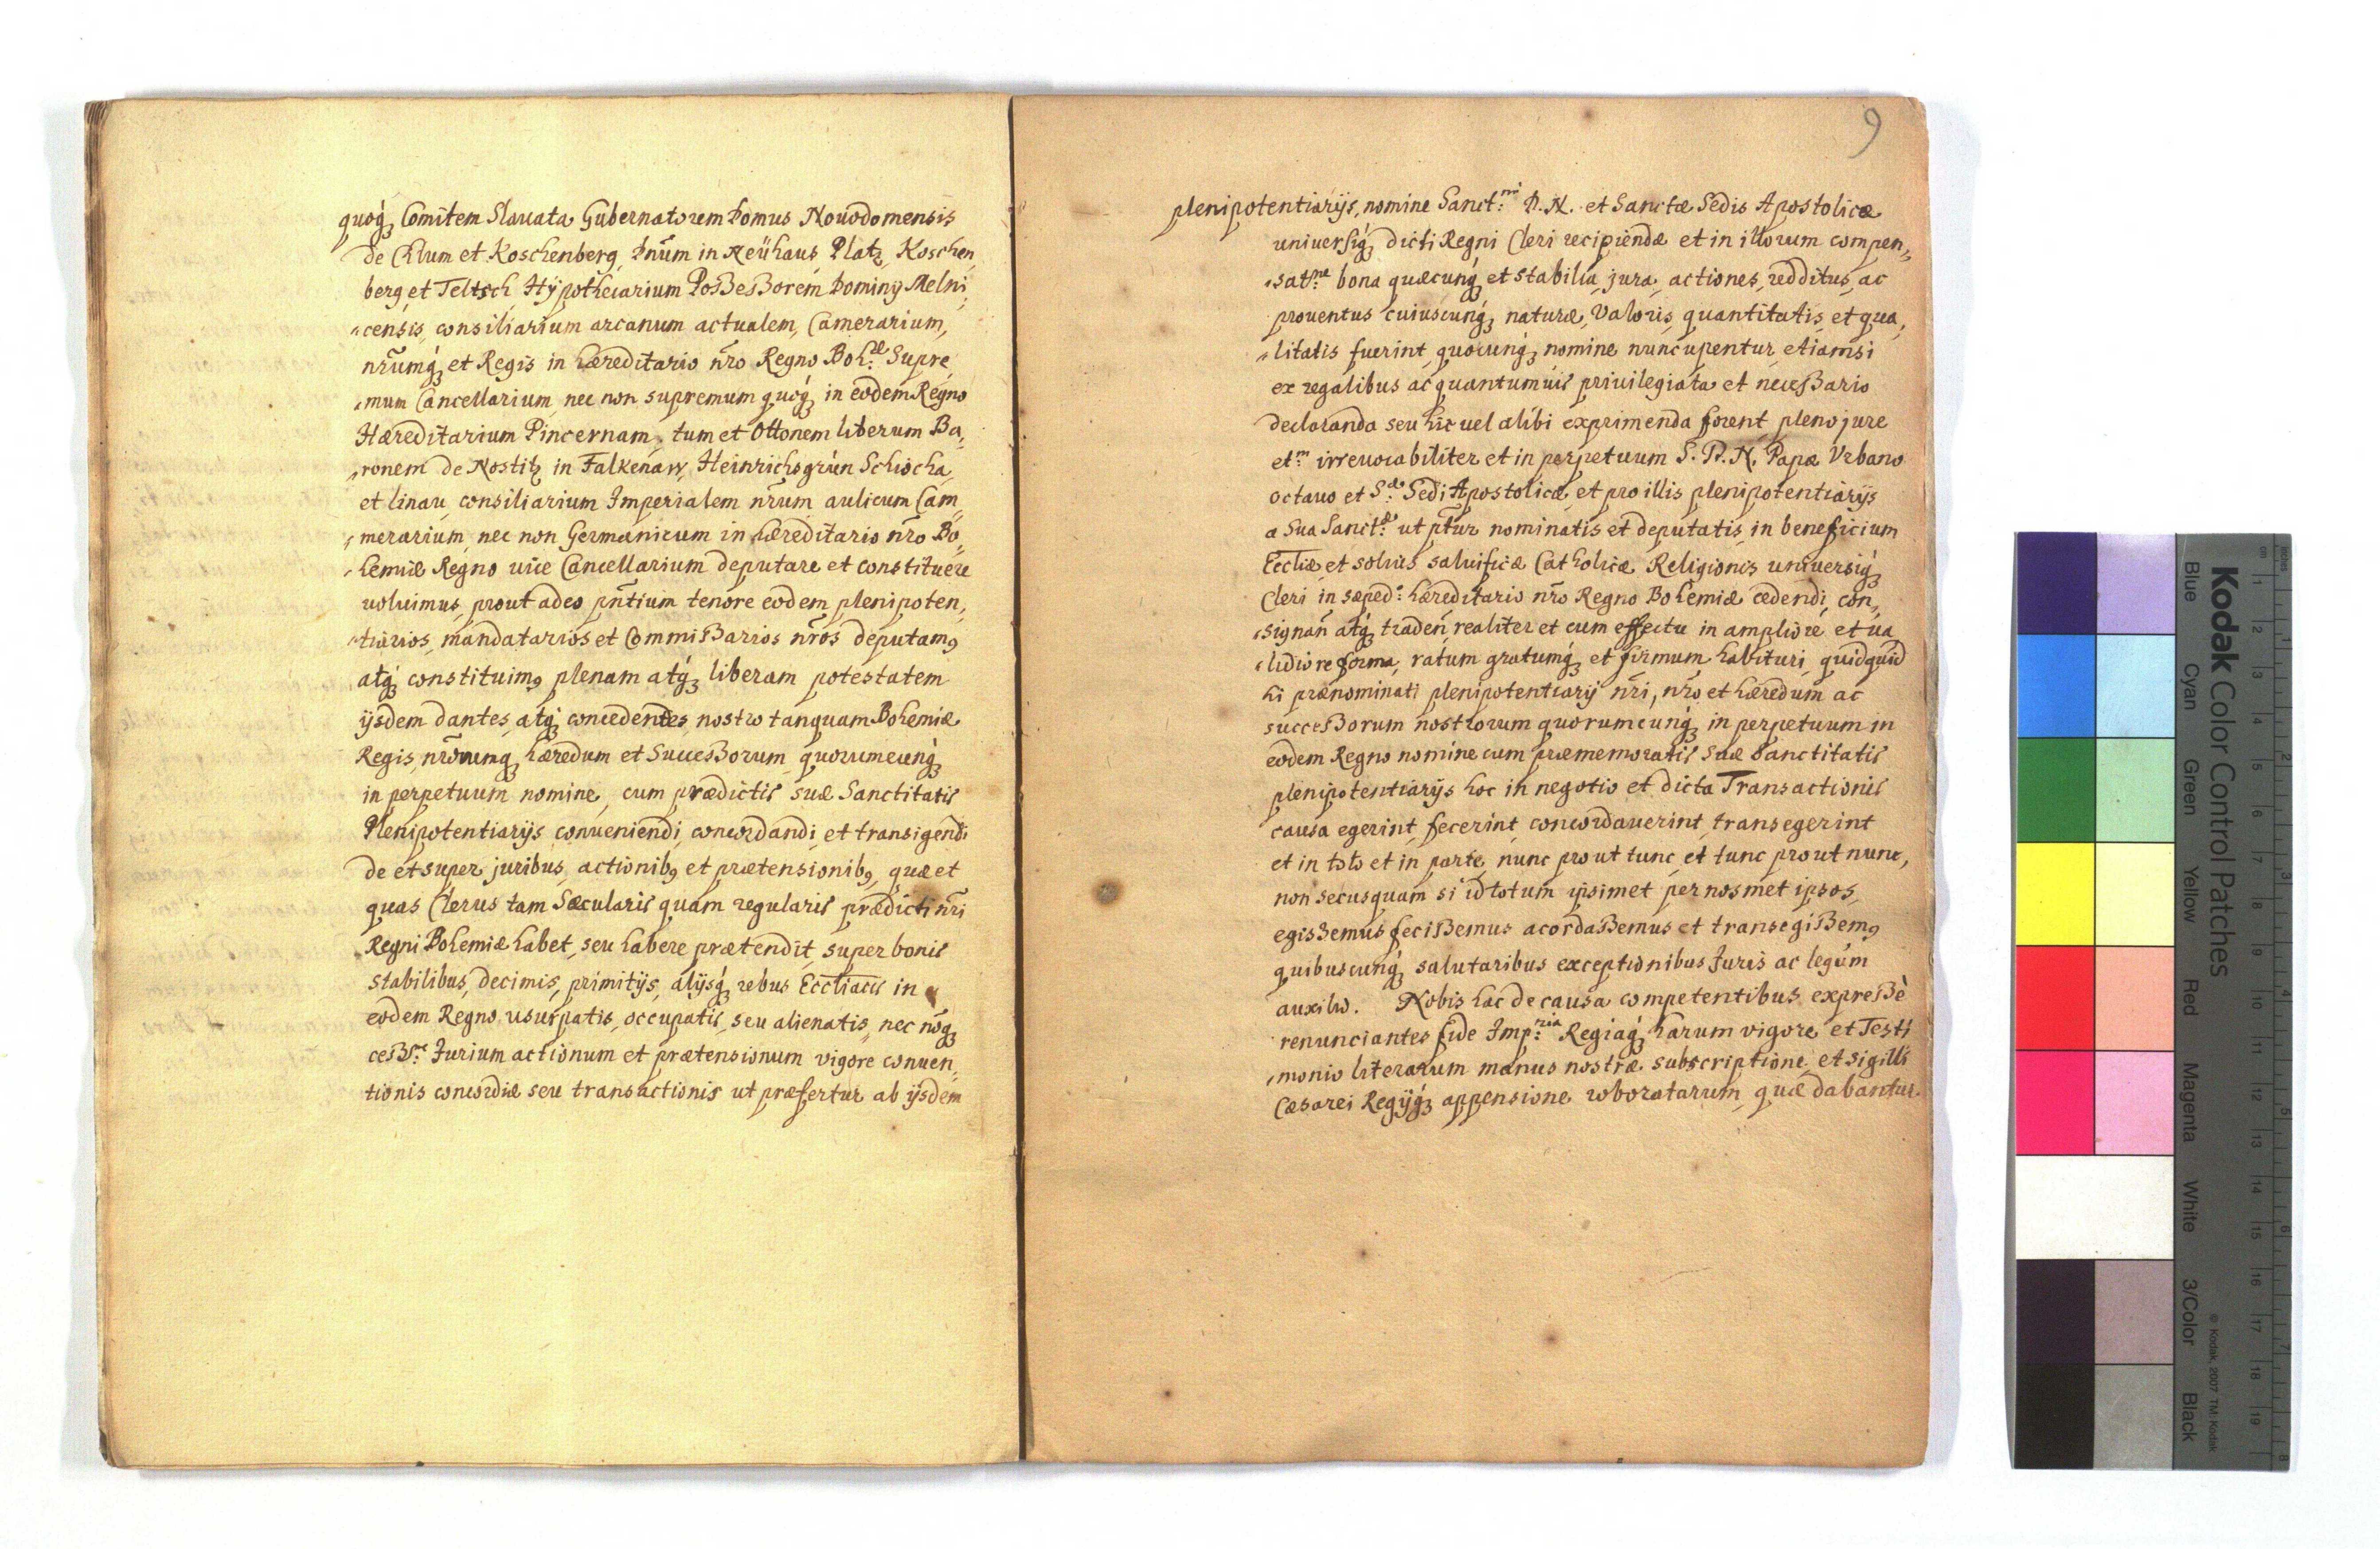 quoq́ȝ Comitem Slauata Gubernatorem Domus Nouodomensis
de Chlum et Koschenberg Dnūm in Neÿhaus, Platz, Koschen„
berg et Teltsch, Hÿpothecarium Possessorem Dominÿ Melni„
„censis, consiliarium arcanum actualem, Camerarium,
nr̄umq́ȝ et Regis in hæreditario nr̄o Regno Boh:ᵃᵉ Supre„
„mum Cancellarium, nec non supremum quoq́ȝ in eodem Regno
Hæreditarium Pincernam, tum et Ottonem liberum Ba„
„ronem de Nostitz in Falkenaw, Heinrichsgrün Schöscha
et linau, consiliarium Imperialem nr̄um aulicum Cam„
„merarium, nec non Germanicum in hæreditario nr̄o Bo„
„hemiæ Regno uice Cancellarium deputare et constituere
uoluimus, prout adeo pn̄tium tenore eodem plenipoten„
„tiarios, mandatarios et Commissarios nr̄os deputamꝰ
atq́ȝ constituimꝰ, plenam atq́ȝ liberam potestatem
ijsdem dantes, atq́ȝ concedentes, nostro tanquam Bohemiæ
Regis, nr̄orumqȝ hæredum et Successorum quorumcunq́ȝ
in perpetuum nomine, cum prædictis suæ Sanctitatis
Plenipotentiarijs conueniendi, concordandi, et transigendi
de et super juribus, actionibꝰ et prætensionibꝰ, quæ et
quas Clerus tam Sæcularis quam regularis prædicti nr̄i
Regni Bohemiæ habet, seu habere prætendit, super bonis
stabilibus, decimis, primitijs, alijsq́ȝ rebus Eccl̄iacis in
eodem Regno usurpatis, occupatis, seu alienatis, nec nōqȝ
cess:ⁿᵉ Jurium actionum et prætensionum vigore conuen„
tionis concordiæ seu transactionis ut præfertur ab ijsdem
9
plenipotentiarijs, nomine Sanct:ᵐⁱ D. N. et Sanctæ Sedis Apostolicæ
uniuersiq́ȝ dicti Regni Cleri recipiendæ et in illorum compen„
„satⁿᵉ: bona quæcunq́ȝ et stabilia, jura, actiones, redditus, ac
prouentus cuiuscunq́ȝ naturæ, Valoris, quantitatis, et qua„
„litatis fuerint, quocunq́ȝ nomine nuncupentur, etiamsi
ex regalibus ac quantumuis priuilegiata et necessario
declaranda seu hic uel alibi exprimenda forent pleno jure
et:ᵐ irreuocabiliter et in perpetuum S. D. N. Papæ Vrbano
octauo et S:ᵃᵉ Sedi Apostolicæ, et pro illis plenipotentiarijs
a Sua Sanct:ᵗᵉ ut pt̄ur nominatis et deputatis, in beneficium
Eccl̄iæ, et solius saluificæ Catholicæ Religionis uniuersiq́ȝ
Cleri in sæped: hæreditario nr̄o Regno Bohemiæ cedendi, con„
„signan̄ atq́ȝ traden̄, realiter et cum effectu in ampliore et ua„
„lidiore forma, ratum gratumq́ȝ et firmum habituri, quidquid
hi prænominati plenipotentiarij nr̄i, nr̄o et hæredum ac
successorum nostrorum quorumcunq́ȝ in perpetuum in
eodem Regno nomine cum præmemoratis suæ Sanctitatis
plenipotentiarijs hoc in negotio et dicta Transactionis
causa egerint, fecerint, concordauerint, transegerint
et in toto et in parte, nunc prout tunc, et tunc prout nunc,
non secus quam si id totum ipsimet per nosmet ipsos,
egissemus fecissemus acordassemus et transegissemꝰ
quibuscunq́ȝ salutaribus exceptionibus Juris ac legum
auxilio. Nobis hac de causa competentibus expressè
renunciantes fide Imp:ʳⁱᵃ Regiaq́ȝ harum vigore et Testi
„monio literarum manus nostræ subscriptione, et sigilli
Cæsarei Regijq́ȝ appensione roboratarum, quæ dabantur
Kodak Color Control Patches
Blue Cyan Green Yellow Red Magenta White 3/Color Black
© Kodak, 2007 TM: Kodak